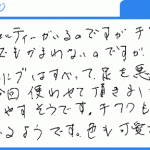 ルティーがいるのですが チワ
でもかまわないのですが
ングはすべて、足を悪
今回 使わせて頂きまし
やすそうです。チワワも
るようです。色も可愛